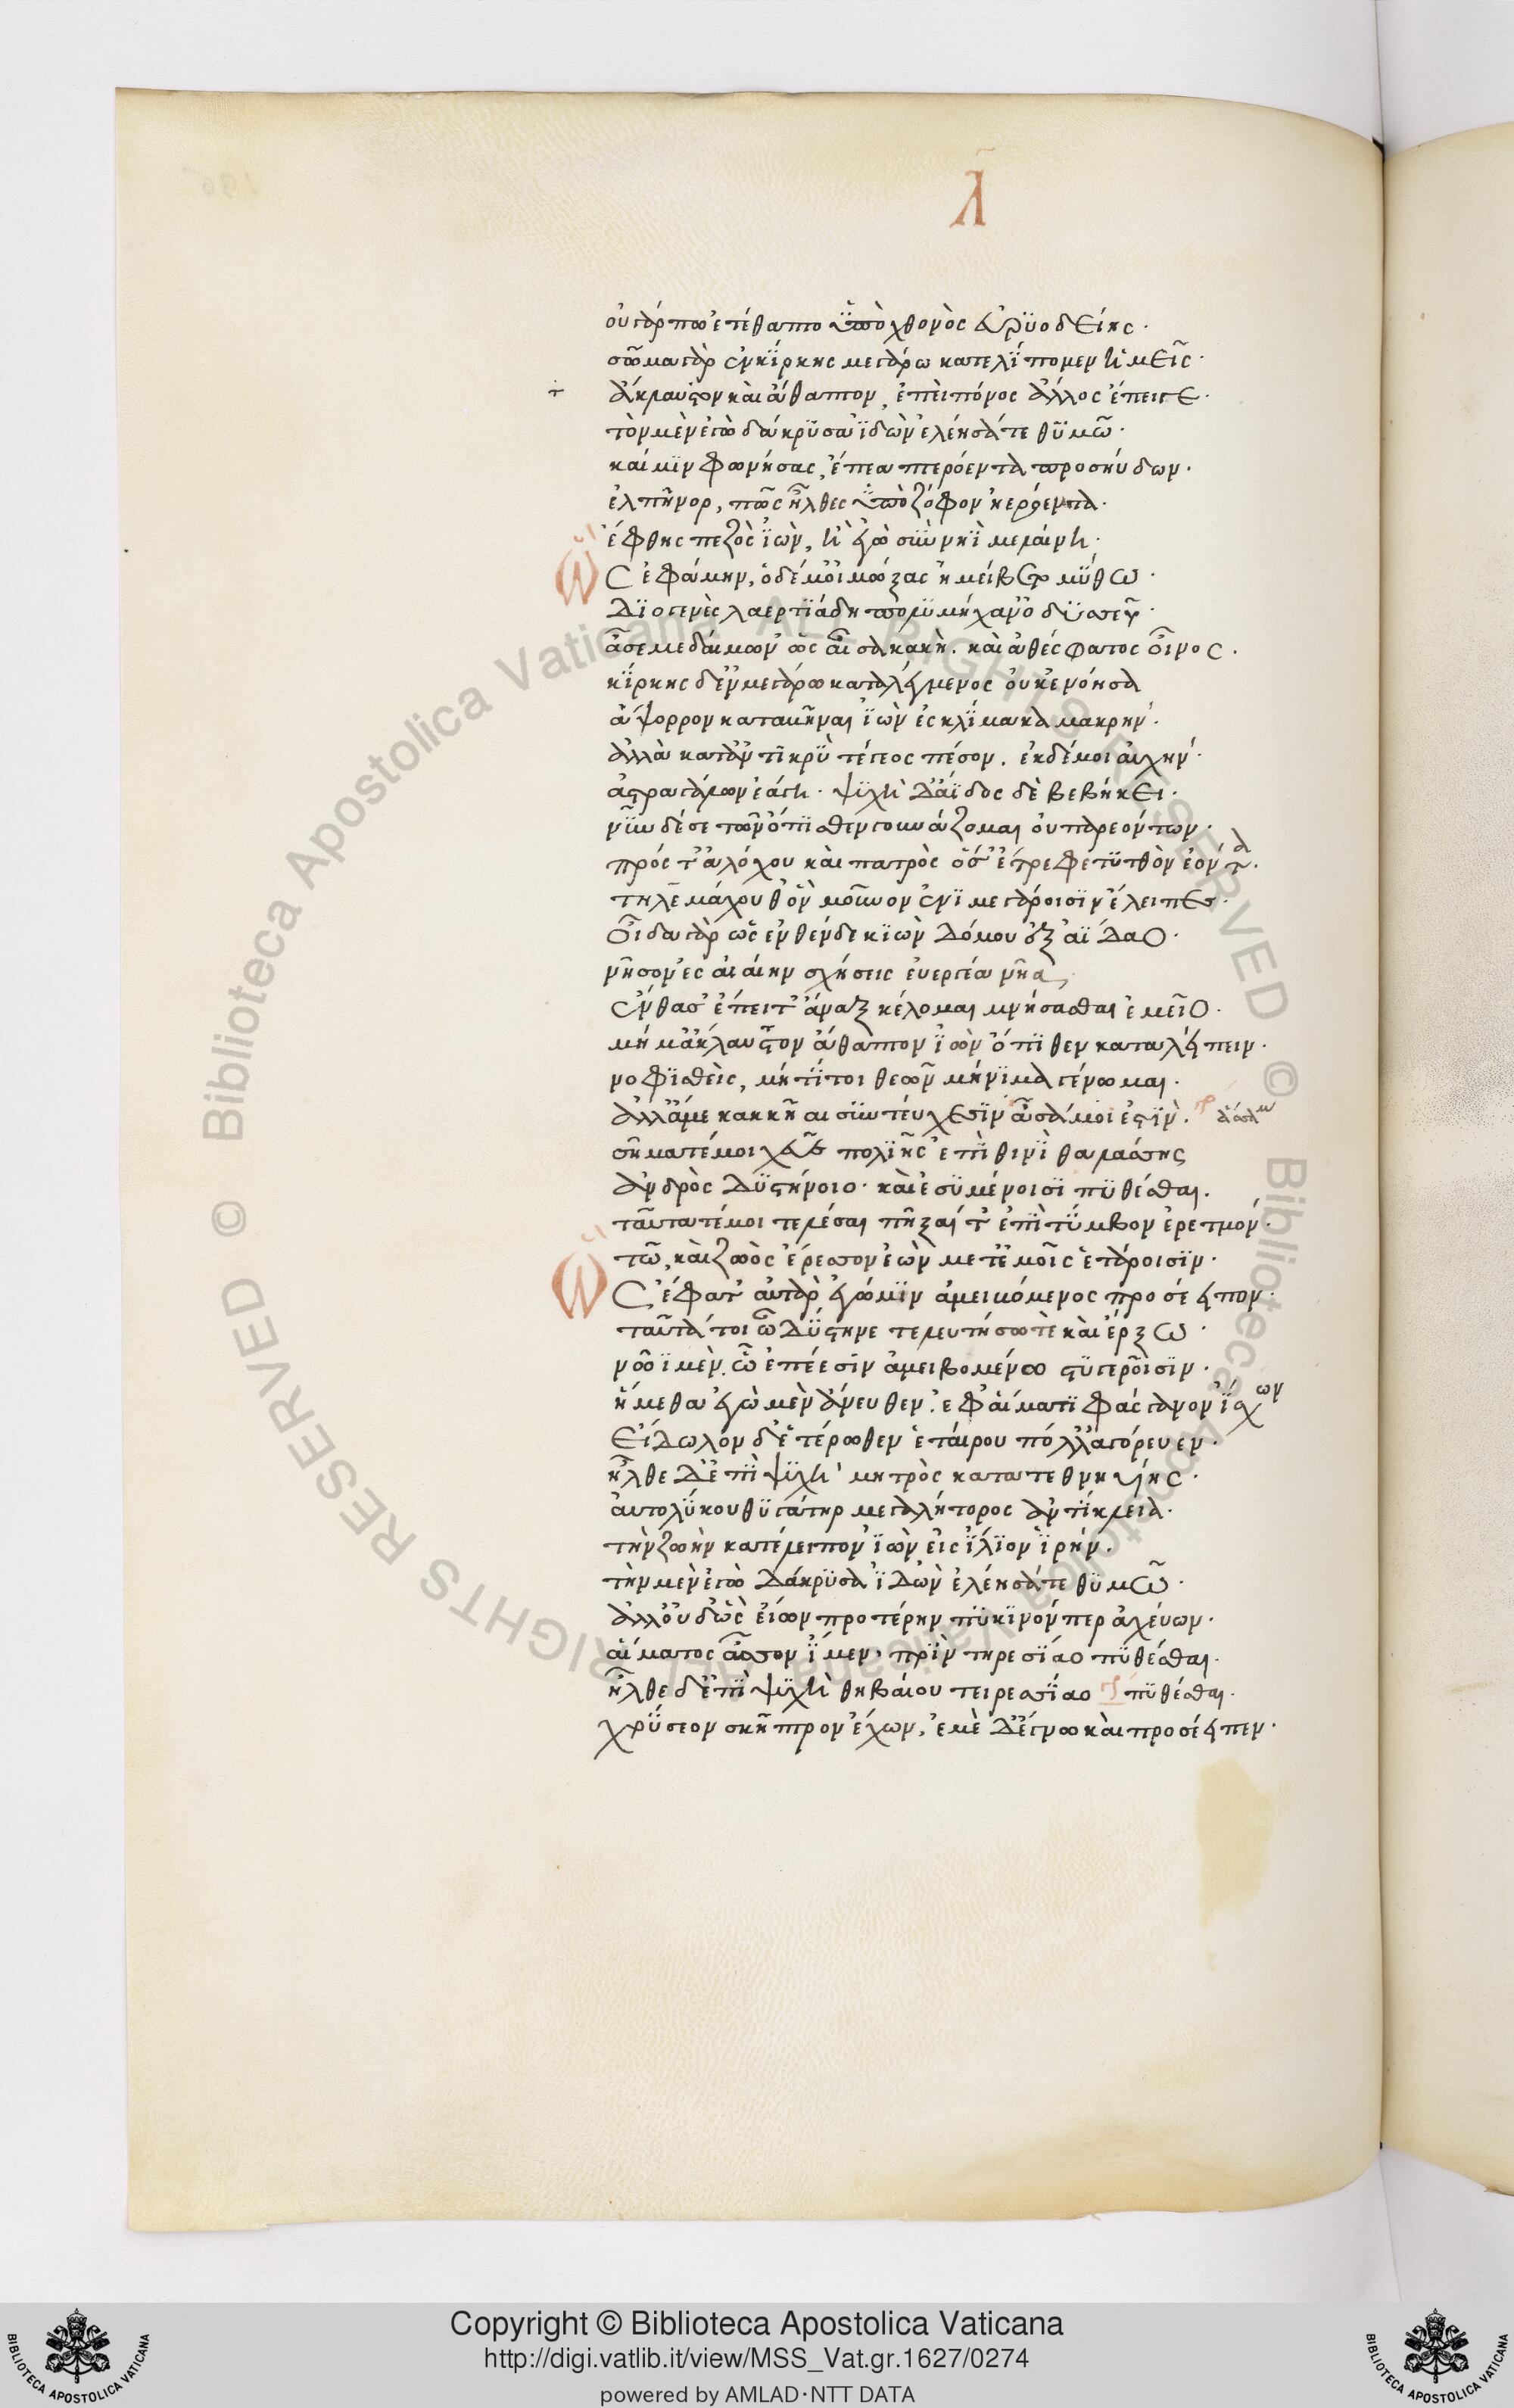 λ̄
οὐ γάρ πω ἐτέθαπτο ὑπὸ χθονὸς εὐρυοδείης·
σῶμα γὰρ ἐν κίρκης μεγάρω κατελίπομεν ἡμεῖς·
ἄκλαυστον καὶ ἄθαπτον, ἐπεὶ πόνος ἄλλος ἔπειγε·
τὸν μὲν ἐγὼ δάκρυσα ἰδὼν ἐλέησά τε θυμῶ·
καί μιν φωνήσας, ἔπεα πτερόεντα προσηύδων·
ἐλπῆνορ, πῶς ἦλθες ὑπὸ ζόφον ἠερόεντα·
ἔφθης πεζὸς ἰὼν, ἢ ἐγὼ σὺν νηῒ μελαίνη·
ὣς ἐφάμην, ὁ δέ μ' οἰμώξας ἠμείβετο μύθω·
Διογενὲς λαερτιάδη πολυμήχαν' ὀδυσσεῦ·
ἆσέ με δαίμων ὸς αἶσα κακὴ. καὶ ἀθέσφατος οἶνος·
κίρκης δ' ἐν μεγάρω καταλέγμενος οὐκ ἐνόησα
ἄψορρον καταβῆναι ἰὼν ἐς κλίμακα μακρήν·
ἀλλὰ καταντικρὺ τέγεος πέσον. ἐκ δέ μοι αὐχήν·
ἀστραγάλων ἐάγη· ψυχὴ δ' ἄϊδος δὲ βεβήκει·
νῦν δέ σε τῶν ὄπιθεν γουνάζομαι οὐ παρεόντων·
πρός τ' ἀλόχου καὶ πατρὸς ὅς σ' ἔτρεφε τυτθὸν ἐόντα·
τηλεμάχου θ' ὃν μοῦνον ἐνὶ μεγάροισιν ἔλειπες·
Οἶδα γὰρ ὡς ἐνθένδε κιὼν δόμου ἐξ ἀΐδαο·
νῆσον ἐς αἰαίην σχήσεις εὐεργέα νῆα,
ἔνθα σ' ἔπειτ' ἄναξ κέλομαι μνήσασθαι ἐμεῖο·
μή μ' ἄκλαυστον ἄθαπτον ἰὼν ὄπιθεν καταλείπειν·
νοσφισθεὶς, μή τί τοι θεῶν μήνιμα γένωμαι·
ἀλλά με κακκῆαι σὺν τεύχεσιν ἅσσα μοί ἐστὶν.
σῆμα τέ μοι χεῦαι πολιῆς ἐπὶ θινὶ θαλάσσης
ἀνδρὸς δυστήνοιο· καὶ ἐσσυμένοισι πυθέσθαι.
ταῦτα τέ μοι τελέσαι πῆξαί τ' ἐπὶ τύμβον ἐρετμόν·
τῶ, καὶ ζωὸς ἔρεσσον ἐὼν μετ' ἐμοῖς ἑτάροισιν·
ὣς ἔφατ' αὐτὰρ ἐγώ μιν ἀμειβόμενος προσέειπον·
ταῦτά τοι ὦ δύστηνε τελευτήσω τὲ καὶ ἔρξω·
νῶϊ μὲν. ὣς ἐπέεσσιν ἀμειβομένω στυγεροῖσιν·
ἥμεθα ἐγὼ μὲν ἄνευθεν. ἐφ' αἵματι φάσγανον ἴσχων
Εἴδωλόν δ' ἑτέρωθεν ἑταίρου πόλλ' ἀγόρευεν·
ἦλθε δ' ἐπὶ ψυχὴ μητρὸς κατατεθνηυίης·
αὐτολύκου θυγάτηρ μεγαλήτορος ἀντίκλεια·
τὴν ζωὴν κατέλειπον ἰὼν εἰς ἴλιον ἱρήν.
τὴν μὲν ἐγὼ δάκρυσα ἰδὼν ἐλέησά τε θυμῶ·
ἀλλ' οὐδ' ὣς εἴων προτέρην πυκινόν περ ἀχεύων·
αἵματος ἆσσον ἴμεν, πρὶν τηρεσίαο πυθέσθαι·
ἦλθε δ' ἐπὶ ψυχὴ θηβαίου τειρεσίαο πυθέσθαι·
χρύσεον σκῆπτρον ἔχων, ἐμὲ δ' ἔγνω καὶ προσέειπεν·
Copyright © Biblioteca Apostolica Vaticana
http://digi.vatlib.it/view/MSS_Vat.gr.1627/0274
powered by AMLAD·NTT DATA